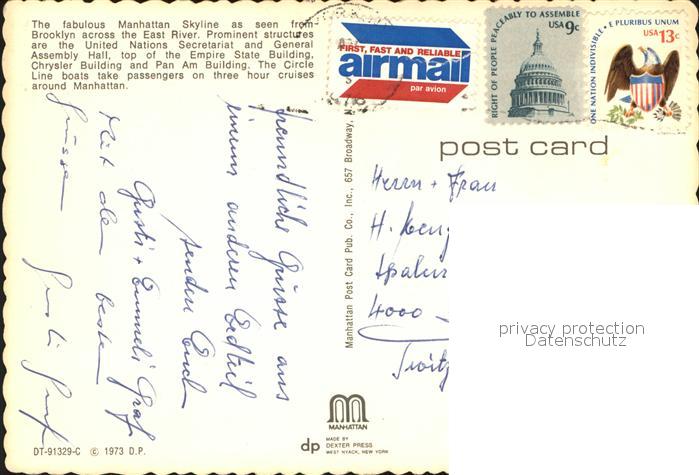 The fabulous Manhattan Skyline as seen from
Brooklyn across the East River. Prominent structures
are the United Nations Secretariat and General
Assembly Hall, top of the Empire State Building,
Chrysler Building and Pan Am Building. The Circle
Line boats take passengers on three hour cruises
around Manhattan.
FIRST, FAST AND RELIABLE
airmail
par avion
RIGHT OF PEOPLE PEACEABLY TO ASSEMBLE
USA 9c
ONE NATION INDIVISIBLE • E PLURIBUS UNUM
USA 13c
post card
freundliche Grüsse aus
einem anderen Erdteil
senden Euch
Gusti + Emmeli Graf
Mit den besten
Grüssen
Gusti Graf
Manhattan Post Card Pub. Co., Inc., 657 Broadway, N
Herrn + Frau
H.
4000
privacy protection
Datenschutz
MANHATTAN
dp
MADE BY
DEXTER PRESS
WEST NYACK, NEW YORK
DT-91329-C © 1973 D.P.